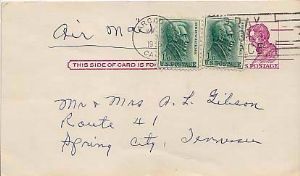 Air Mail
THIS SIDE OF CARD IS FOR
U.S. POSTAGE
U.S. POSTAGE
U.S. POSTAGE
Mr & Mrs A. L. Gibson
Route 41
Spring City, Tennessee